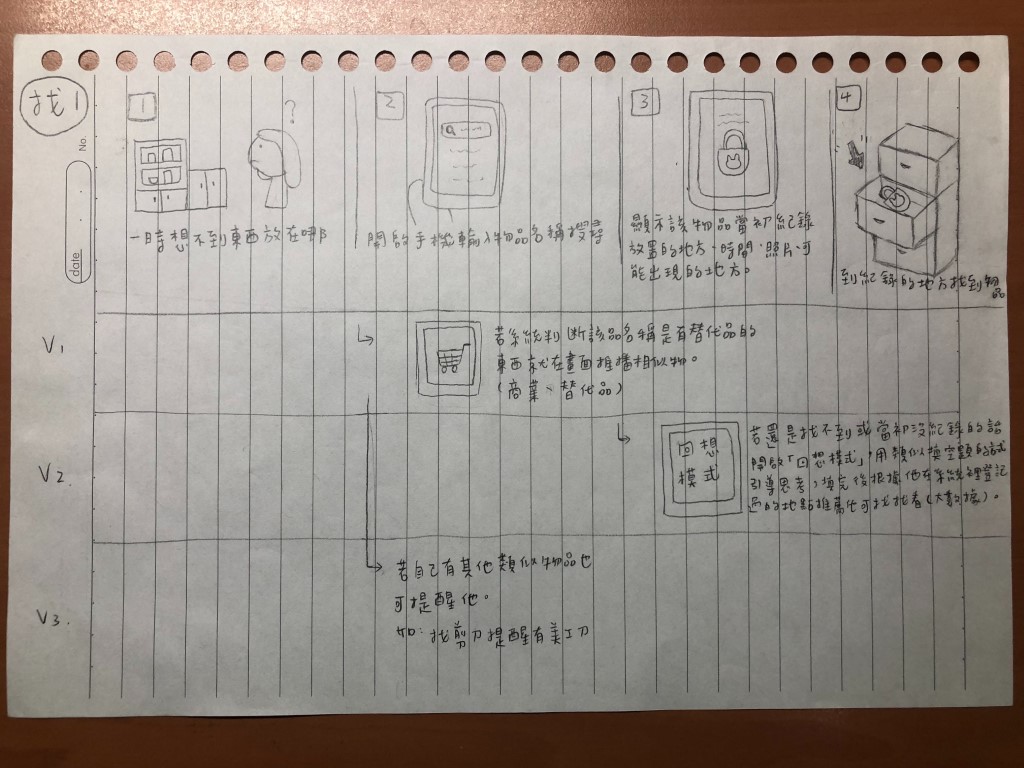 找1
No.
date
1
?
一時想不到東西放在哪
2
開啟手機輸入物品名稱搜尋
3
顯示該物品當初紀錄
放置的地方、時間、照片、可
能出現的地方。
4
到紀錄的地方找到物
品
V1
若系統判斷該品名稱是有替代品的
東西就在畫面推播相似物。
(商業、替代品)
V2.
回想
模式
若還是找不到或當初沒紀錄的話
開啟「回想模式」,用類似填空題的方式
引導思考,填完後根據他在系統裡登記
過的地點推薦他可找找看(大數據)。
V3.
若自己有其他類似物品也
可提醒他。
如:找剪刀提醒有美工刀